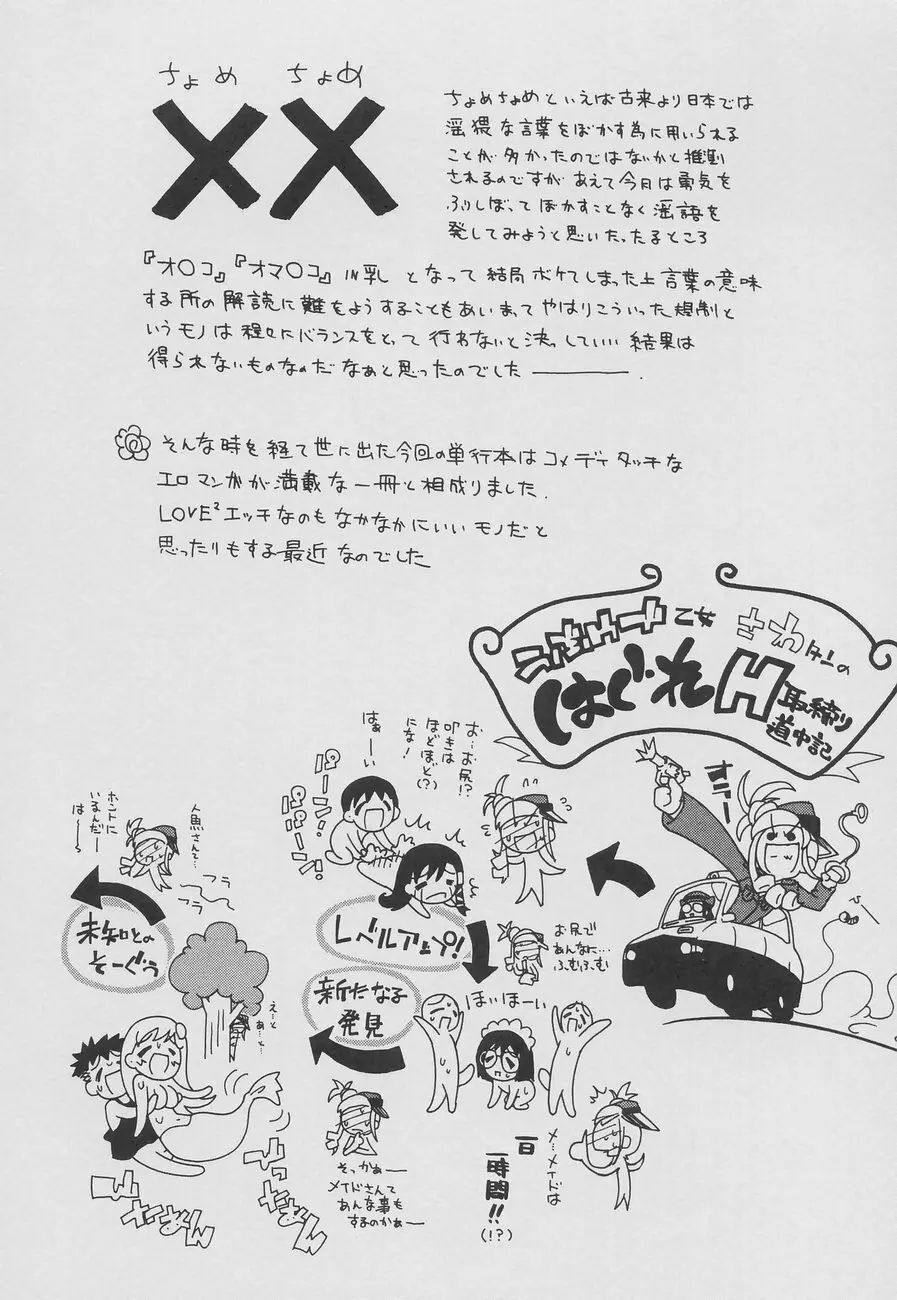 ちょめ ちょめ
××
ちょめちょめといえば古来より日本では
淫猥な言葉をぼかす為に用いられる
ことが多かったのではないかと推測
されるのですが あえて今日は勇気を
ふりしぼってぼかすことなく淫語を
発してみようと思いたったるところ
『オ〇コ』『オマ〇コ』IN乳 となって結局ボケてしまった上言葉の意味
する所の解読に難をようすることもあいまってやはりこういった規制と
いうモノは程々にバランスをとって行わないと決っしていい結果は
得られないものなのだなぁと思ったのでした――――.
そんな時を経て世に出た今回の単行本はコメディタッチな
エロマンガが満載な一冊と相成りました.
LOVE²エッチなのもなかなかにいいモノだと
思ったりもする最近なのでした
乙女
さわ
はぐれH取締り
道中記
お…お尻!?
叩きは
ほどほど(?)
にな!
はぁーい
パーン!
レベルアップ!
お尻で
あんなに…
ふむふむ
新たなる
発見
ほいほーい
メ…メイドは
一日
一時間!!
(!?)
そっかぁー
メイドさんて
あんな事も
するのかぁー
え…と
あ…と…
人魚さんて…
ホントに
いるんだー
は〜〜
フラ
フラ
未知との
そーぐう